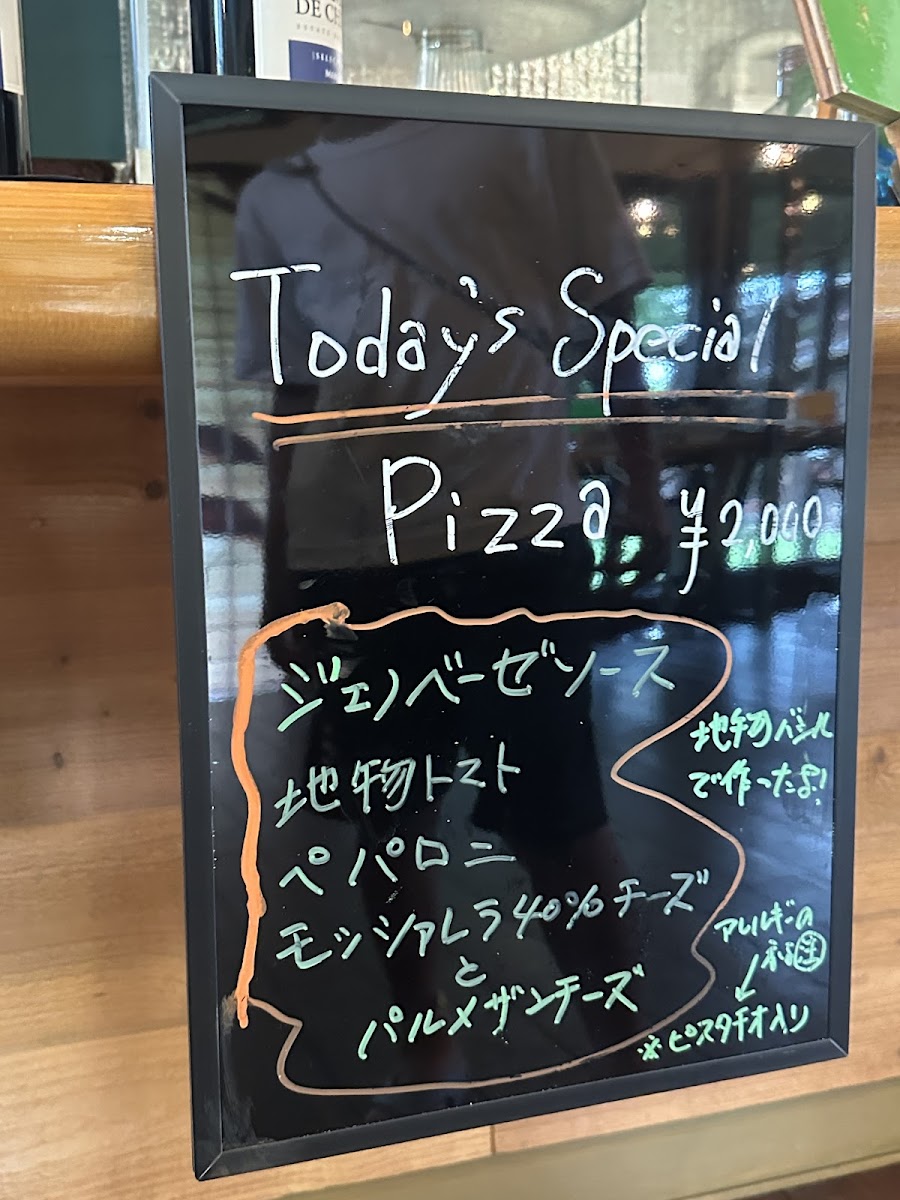 DE CE
Today's Special
Pizza ¥2,000
ジェノベーゼソース
地物バジル
で作ったよ!
地物トマト
ペパロニ
モッツァレラ40%チーズ
と
パルメザンチーズ
アレルギーの
※ピスタチオ入り